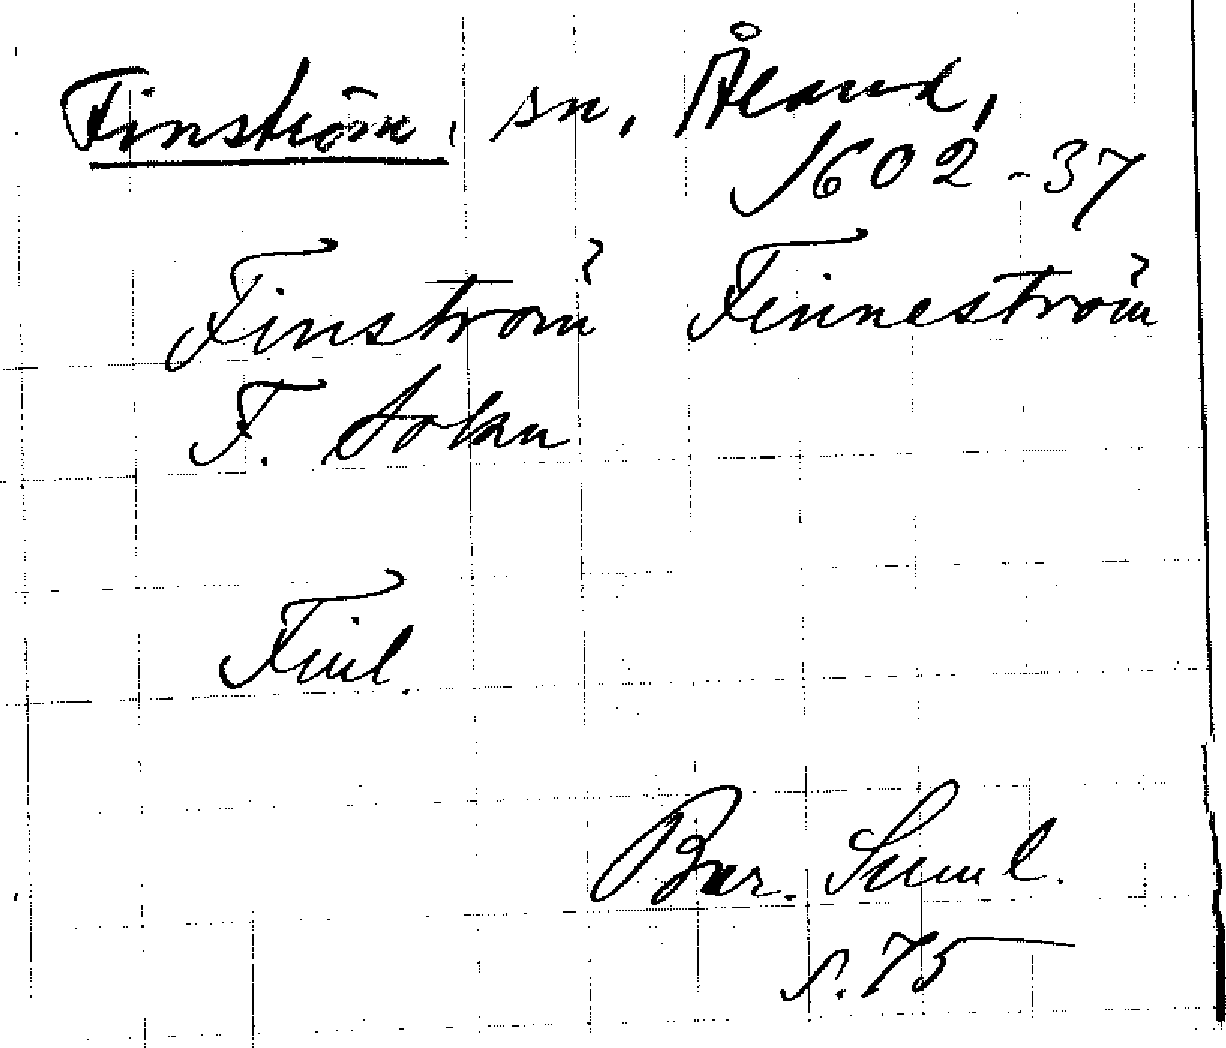 Finström, sn, Åland,
1602-37
Finström Finneström
F. Sokn
Finl.
Bur. Suml.
s. 75